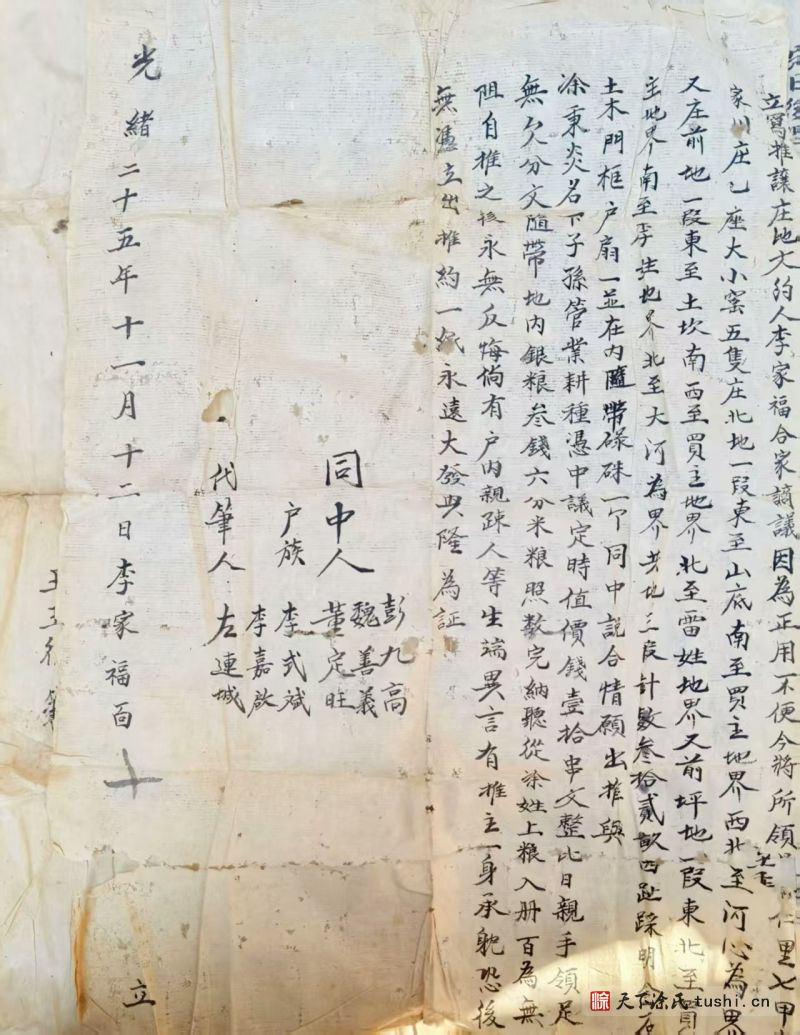 立寫推讓庄地文約人李家福合家謫議因為正用不便今將所領 仁里七甲
家川庄乙座大小窑五隻庄北地一段東至山底南至買主地界西北至河心為界
又庄前地一段東至土坎南西至買主地界北至雷姓地界又前坪地一段東北至買
主地界南至李姓地界北至大河為界共地三段計數叁拾貳畝四趾踩明
土木門框户扇一並在内隨帶碌硃一个同中説合情願出推與
涂秉炎名下子孫管業耕種憑中議定時值價錢壹拾串文整比日親手領足
無欠分文隨帶地内銀粮叁錢六分米粮照数完納聽從涂姓上粮入册百為無
阻自推之後永無反悔倘有户内親疎人等生端異言有推主一身承躭恐後
無憑立出推約一紙永遠大發興隆為証
同中人 彭九高
魏善義
董定旺
户族 李式斌
李嘉啟
代筆人 左連城
光緒二十五年十一月十二日李家福面十 立
天下涂氏 tushi.cn